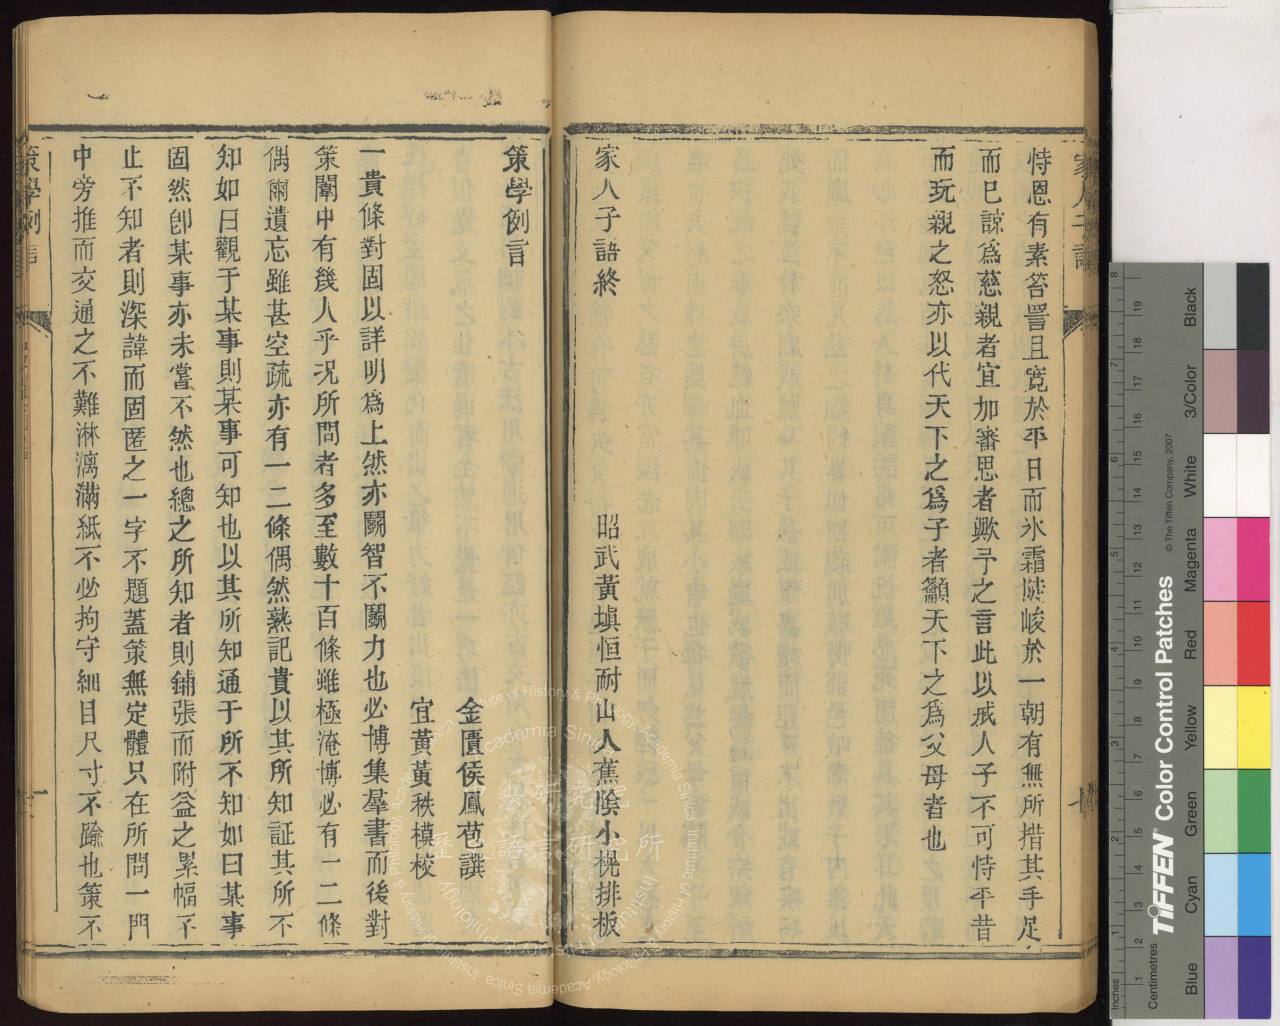 恃恩有素笞詈且寛於平日而氷霜陡峻於一朝有無所措其手足
而已諒爲慈親者宜加審思者歟予之言此以戒人子不可恃平昔
而玩親之怒亦以代天下之爲子者籲天下之爲父母者也
家人子語終
昭武黃塤恒耐山人蕉陰小榥排板
策學例言
金匱侯鳳苞譔
宜黃黃秩模校
一貴條對固以詳明爲上然亦鬭智不鬭力也必博集羣書而後對
策闈中有幾人乎况所問者多至數十百條雖極淹博必有一二條
偶爾遺忘雖甚空疏亦有一二條偶然熟記貴以其所知証其所不
知如曰觀于某事則某事可知也以其所知通于所不知如曰某事
固然卽某事亦未嘗不然也總之所知者則鋪張而附益之累幅不
止不知者則深諱而固匿之一字不題蓋策無定體只在所問一門
中旁推而交通之不難淋漓滿紙不必拘守細目尺寸不踰也策不
策學例言
一
家人子語
Institute of History & Philology, Academia Sinica
TIFFEN® Color Control Patches
© The Tiffen Company, 2007
Centimetres
Inches
Blue
Cyan
Green
Yellow
Red
Magenta
White
3/Color
Black